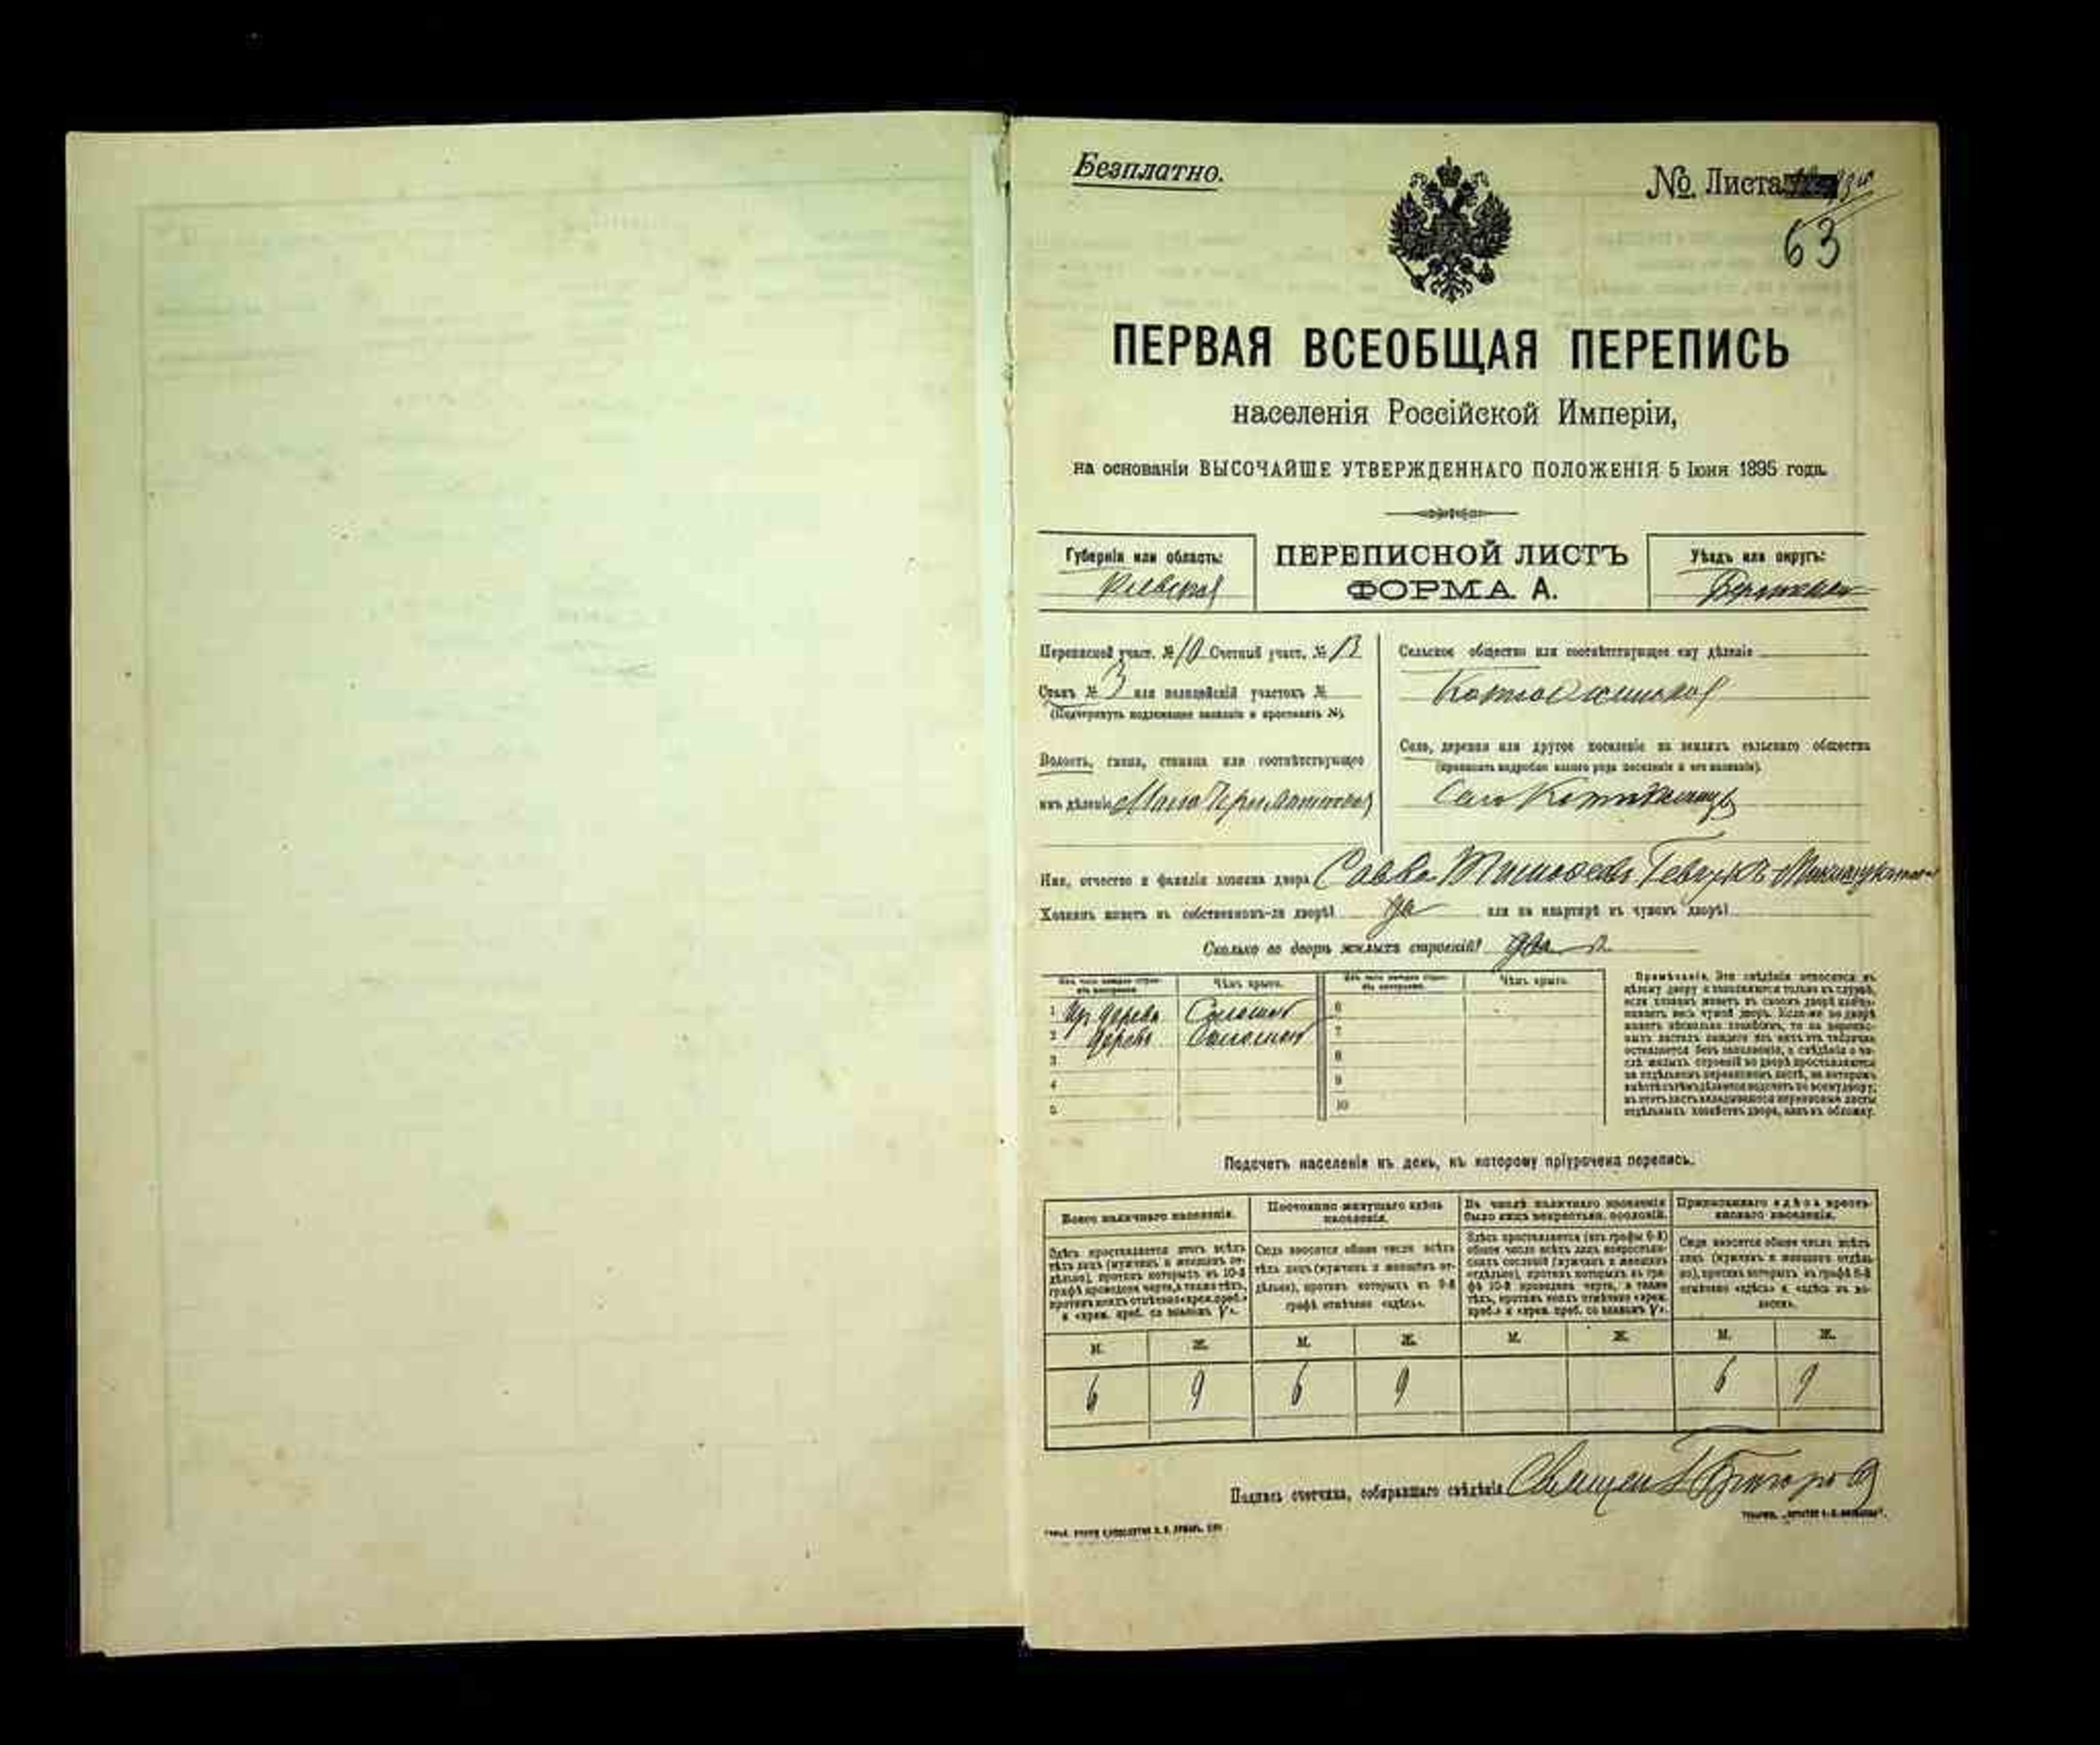 Безплатно.
№ Листа
63
ПЕРВАЯ ВСЕОБЩАЯ ПЕРЕПИСЬ
населенія Россійской Имперіи,
на основаніи ВЫСОЧАЙШЕ УТВЕРЖДЕННАГО ПОЛОЖЕНІЯ 5 Іюня 1895 года.
Губернія или область:
Кіевская
ПЕРЕПИСНОЙ ЛИСТЪ
ФОРМА А.
Уѣздъ или округъ:
Переписной участ. № 10 Счетный участ. № 13
Станъ № 3 или полицейскій участокъ №
(Подчеркнуть подлежащее названіе и проставить №).
Волость, гмина, станица или соотвѣтствующее
имъ дѣленіе
Сельское общество или соотвѣтствующее ему дѣленіе
Село, деревня или другое поселеніе на земляхъ сельскаго общества
(прописать подробно какого рода поселеніе и его названіе).
Село
Имя, отчество и фамилія хозяина двора Савва
Хозяинъ живетъ въ собственномъ-ли дворѣ? да или на квартирѣ въ чужомъ дворѣ?
Сколько во дворѣ жилыхъ строеній? два 2
Изъ чего каждое строеніе построено. Чѣмъ крыто. Изъ чего каждое строеніе построено. Чѣмъ крыто.
1 Изъ дерева Соломою 6
2 дерева Соломою 7
3 8
4 9
5 10
Примѣчаніе. Эти свѣдѣнія относятся къ
цѣлому двору и заполняются только въ случаѣ,
если хозяинъ живетъ въ своемъ дворѣ или нанимаетъ весь чужой дворъ. Если-же во дворѣ
живетъ нѣсколько хозяйствъ, то на переписныхъ листахъ каждаго изъ нихъ эта табличка
оставляется безъ заполненія, а свѣдѣнія о числѣ жилыхъ строеній во дворѣ проставляются
на отдѣльномъ переписномъ листѣ, на которомъ
въ этотъ листъ вкладываются переписные листы
отдѣльныхъ хозяйствъ двора, какъ въ обложку.
Подсчетъ населенія къ день, къ которому пріурочена перепись.
Всего наличнаго населенія.
Постоянно живущаго здѣсь населенія.
Въ числѣ наличнаго населенія было лицъ некрестьян. сословій.
Приписаннаго здѣсь крестьянскаго населенія.
Здѣсь проставляется итогъ всѣхъ
тѣхъ лицъ (мужчинъ и женщинъ отдѣльно), противъ которыхъ въ 10-й
графѣ проведена черта, а также тѣхъ,
противъ коихъ отмѣчено «врем. преб.»
и «врем. преб. со знакомъ V».
Сюда вносится общее число всѣхъ
тѣхъ лицъ (мужчинъ и женщинъ отдѣльно), противъ которыхъ въ 9-й
графѣ отмѣчено «здѣсь».
Здѣсь проставляется (изъ графы 6-й)
общее число всѣхъ лицъ некрестьянскихъ сословій (мужчинъ и женщинъ
отдѣльно), противъ которыхъ въ графѣ 10-й проведена черта, а также
тѣхъ, противъ коихъ отмѣчено «врем.
преб.» и «врем. преб. со знакомъ V».
Сюда вносится общее число всѣхъ
лицъ (мужчинъ и женщинъ отдѣльно), противъ которыхъ въ графѣ 8-й
отмѣчено «здѣсь» и «здѣсь въ волости».
М. Ж. М. Ж. М. Ж. М. Ж.
6 9 6 9 6 9
Подпись счетчика, собиравшаго свѣдѣнія